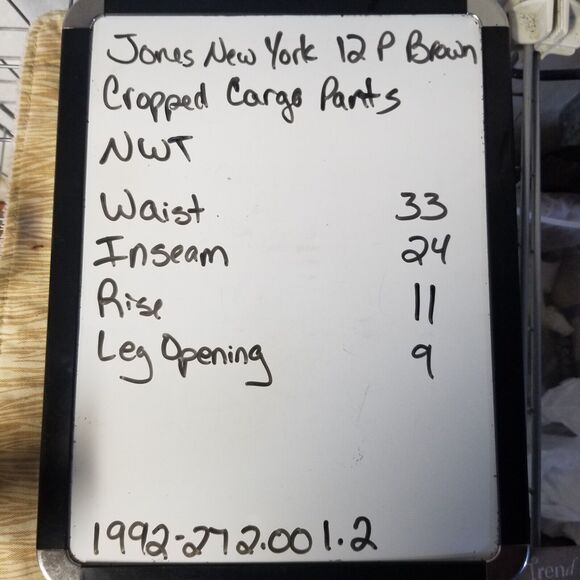 Jones New York 12 P Brown
Cropped Cargo Pants
NWT
Waist 33
Inseam 24
Rise 11
Leg Opening 9
1992-272.001.2